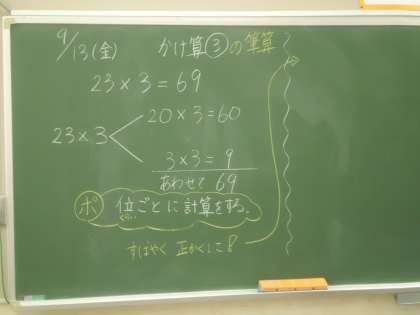 9/13(金) かけ算③の筆算
23×3=69
20×3=60
23×3
3×3=9
あわせて 69
ポ 位ごとに計算をする。
くらい
すばやく 正かくに!